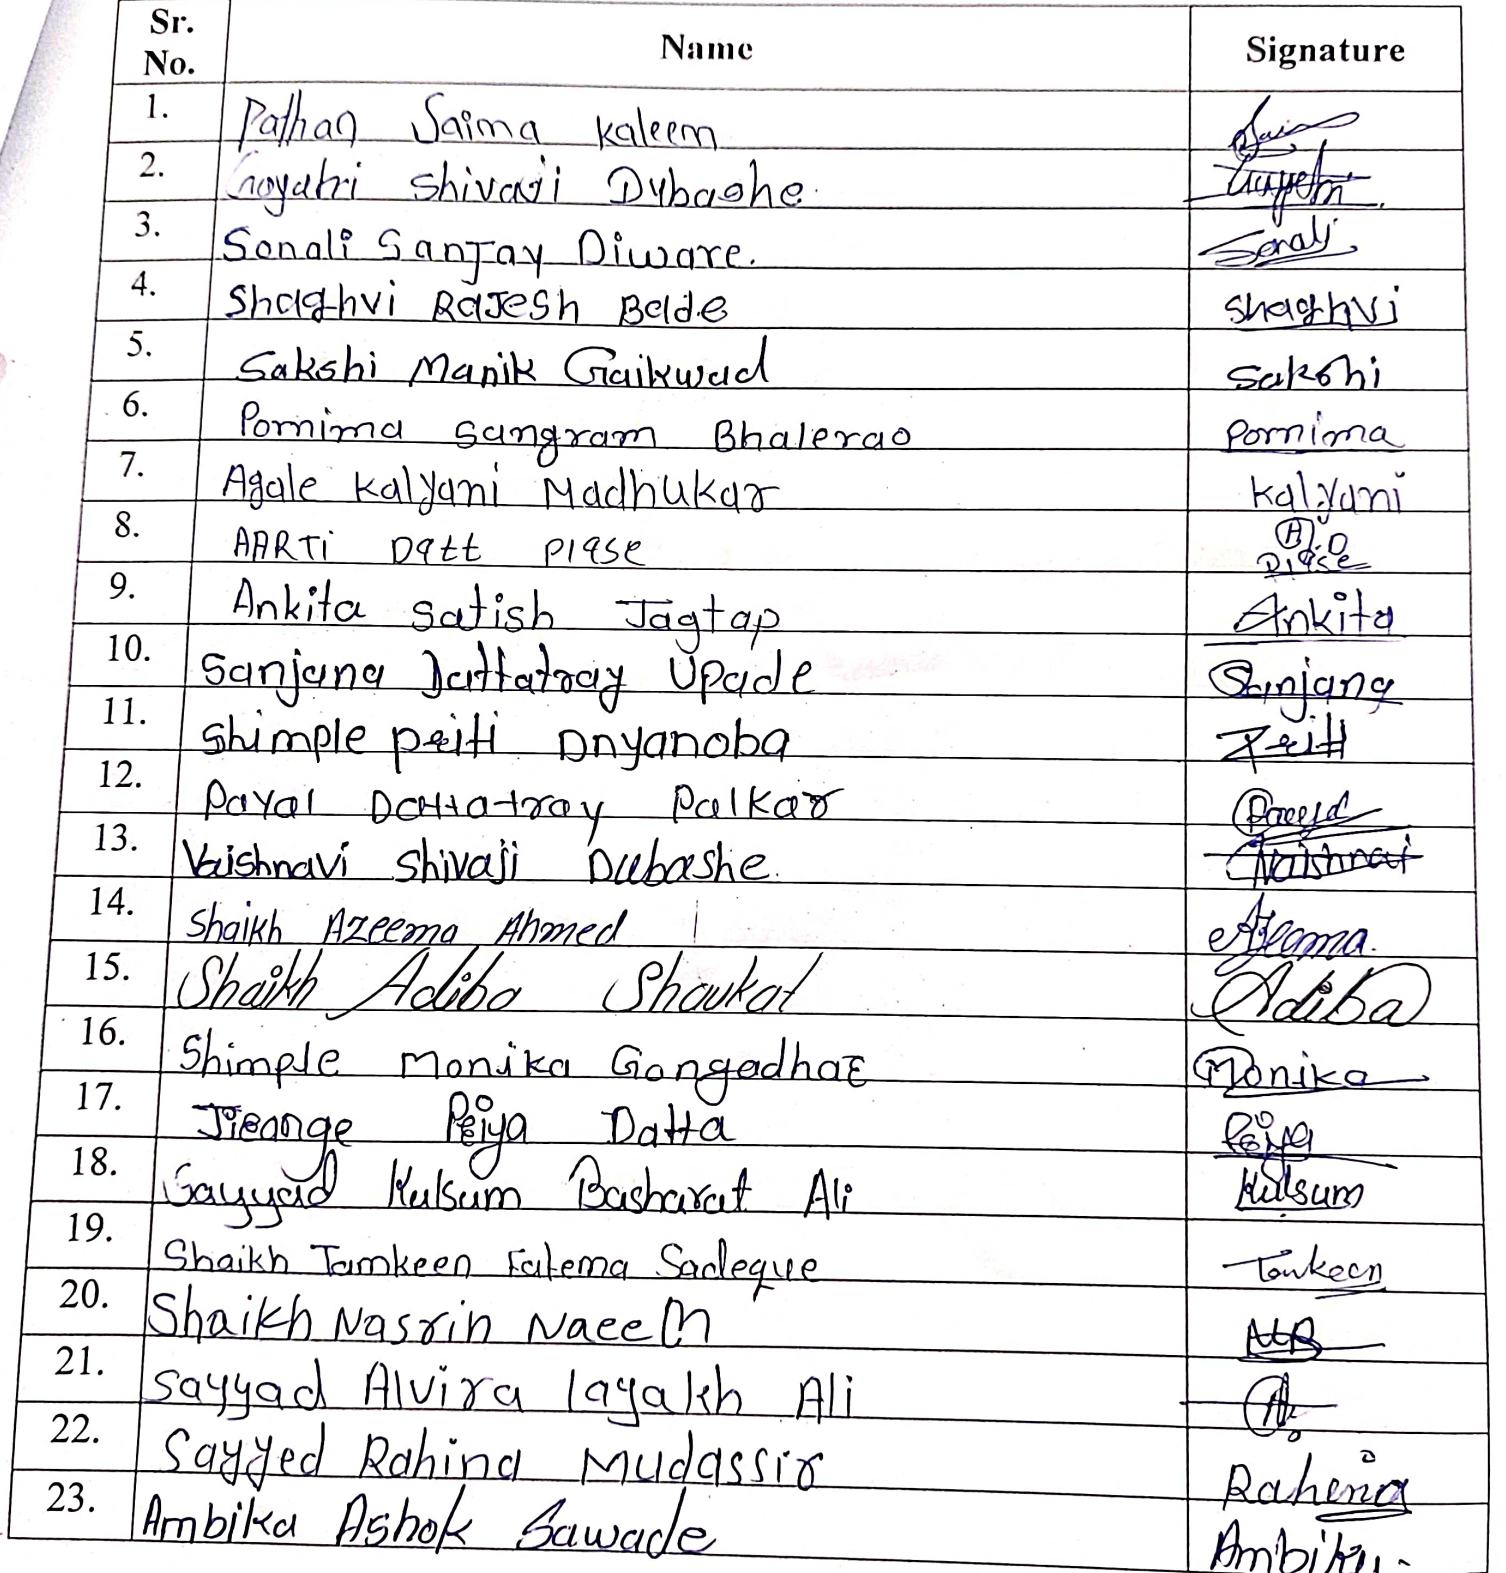 Sr. No. Name Signature
1. Pathan Saima Kaleem
2. Gayatri Shivaji Dubashe.
3. Sonali Sanjay Diware. Sonali
4. Shaghvi Rajesh Belde Shaghvi
5. Sakshi Manik Gaikwad Sakshi
6. Pornima Sangram Bhalerao Pornima
7. Agale Kalyani Madhukar Kalyani
8. AARTi Datt Piase A.D Piase
9. Ankita Satish Jagtap Ankita
10. Sanjana Dattatray Upade Sanjana
11. Shimple Priti Dnyanoba Priti
12. Payal Dattatray Palkar Payal
13. Vaishnavi Shivaji Dubashe. Vaishnavi
14. Shaikh Azeema Ahmed
15. Shaikh Adiba Shaukat Adiba
16. Shimple Monika Gangadhar Monika
17. Priya Datta Priya
18. Sayyad Kulsum Basharat Ali Kulsum
19. Shaikh Tamkeen Fatema Sadeque Tamkeen
20. Shaikh Nasrin Naeem
21. Sayyad Alvira Layakh Ali
22. Sayyed Rahina Mudassir Rahena
23. Ambika Ashok Sawade Ambika.